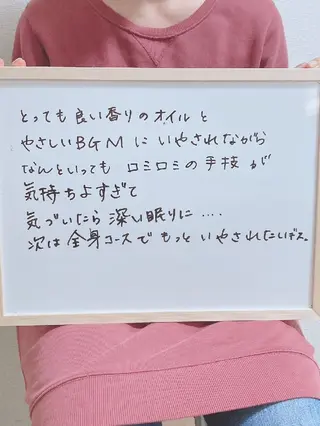 とっても良い香りのオイルと
やさしいBGMにいやされながら
なんといっても ロミロミの手技が
気持ちよすぎて
気づいたら深い眠りに‥‥
次は全身コースでもっといやされたいデス。